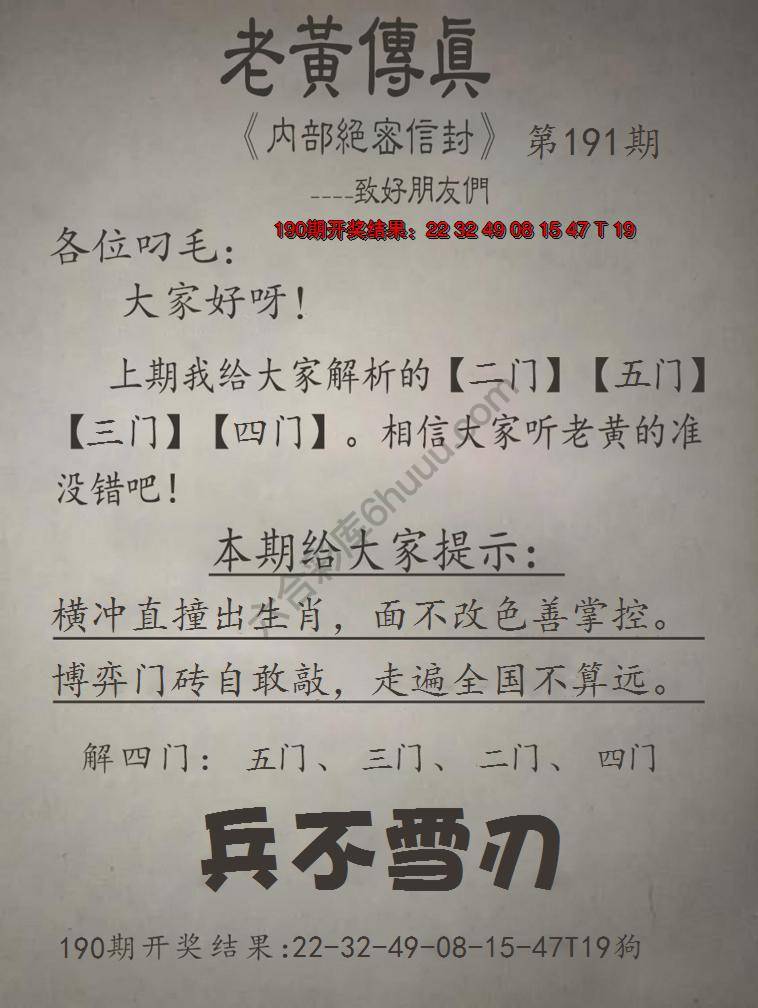 老黃傳真
《内部絕密信封》 第191期
----致好朋友們
190期开奖结果：22 32 49 08 15 47 T 19
各位叼毛：
大家好呀！
上期我给大家解析的【二门】【五门】
【三门】【四门】。相信大家听老黄的准
没错吧！
本期给大家提示：
横冲直撞出生肖，面不改色善掌控。
博弈门砖自敢敲，走遍全国不算远。
解四门：五门、三门、二门、四门
兵不雪刃
190期开奖结果:22-32-49-08-15-47T19狗
六合彩库6huuu.com